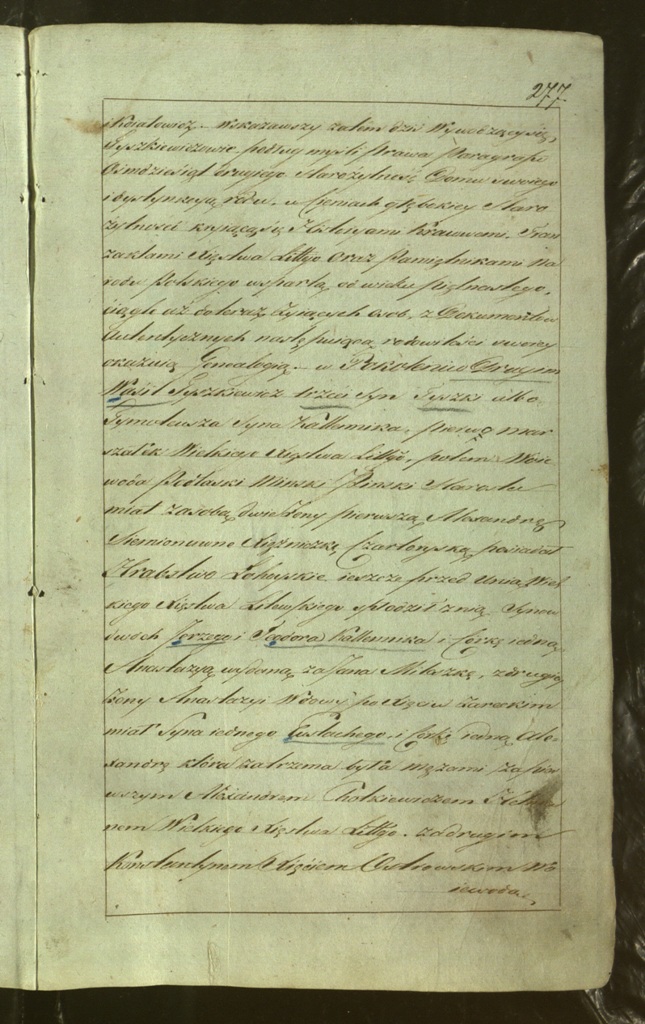 277
i Koralewicz. Wskazawszy zatem dziś Wywodzący się,
Tyszkiewiczowie podług myśli prawa Paragrafu
Ośmdziesiąt drugiego Starożytność Domu swoiego
i dystynkcyą rodu, w Cieniach głębokiey Staro
żytności kryiącą się Historyami Kraiowemi, Tran
zaktami Xięstwa Littgo oraz Pamiętnikami Na
rodu Polskiego wspartą, od wieku Piętnastego,
ciągle aż do teraz żyiących osob, z Dokumentow
Autentycznych następuiącą rodowitości swoiey
okazuią Genealogią. w Pokoleniu Drugim
Wasil Tyszkiewicz trzeci Syn Tyszki albo
Tymoteusza Syna Kallennika, pierwey mar
szałek Wielkiego Xięstwa Littgo, potem Woie
woda Podlaski Minski Pinski Starosta
miał za sobą dwie żony pierwszą Alexandrę
Siemionowne Xiężniczkę Czartoryską, posiadał
Hrabstwo Łohoyskie ieszcze przed Unią Wiel
kiego Xięstwa Litewskiego spłodził z nią Synow
dwóch Jerzego i Teodora Kallennika i Corkę iedną
Anastazyą wydaną za Jana Mitaszkę, z drugiey
żony Anastazyi Wdowy po Xięciu Żarackim
miał Syna iednego Eustachego, i Corkę iedną Ale-
xandrę która za trzema była mężami za pier
wszym Alexandrem Chotkiewiczem Hetma
nem Wielkiego Xięstwa Littgo. za drugim
Konstantynem Xięciem Ostrowskim Wo
iewodą,